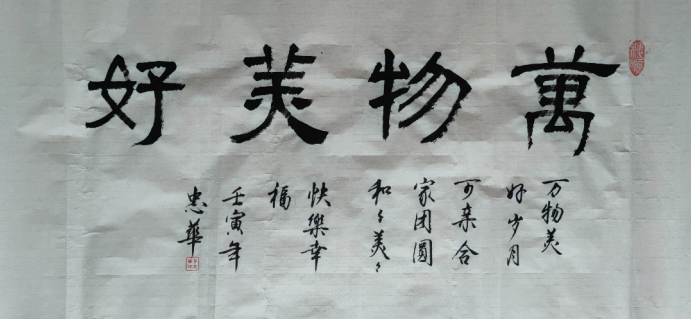 萬物美好
万物美
好岁月
可亲合
家团圆
和々美々
快樂幸
福
壬寅年
忠華